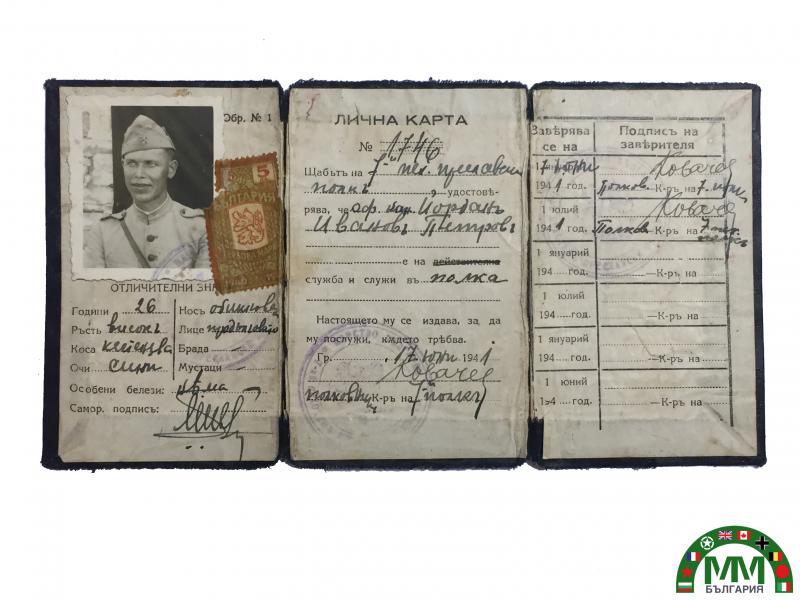 Обр. № 1
5
БЪЛГАРИЯ
ОТЛИЧИТЕЛНИ
Години 26
Носъ обикновен
Ръстъ високъ
Лице
Коса
Брада
Очи сини
Мустаци
Особени белези: няма
Самор. подпись:
ЛИЧНА КАРТА
№ 1746
Щабътъ на 7 пех. преславски
полкъ, удостовѣ-
рява, че Йорданъ
Ивановъ Петровъ
е на действителна
служба и служи въ полка
Настоящето му се издава, за да
му послужи, кждето трѣбва.
Гр. 17 юни 1941
Ковачев
К-ръ на 7 полкъ
Завѣрява се на
Подпись на завѣрителя
1 юни
1941 год.
Ковачев
Полков. К-ръ на 7
1 юлий
1941 год.
Ковачев
Полков К-ръ на 7
1 януарий
194 год.
К-ръ на
1 юлий
194 год.
К-ръ на
1 януарий
194 год.
К-ръ на
1 юний
194 год.
К-ръ на
ММ
БЪЛГАРИЯ